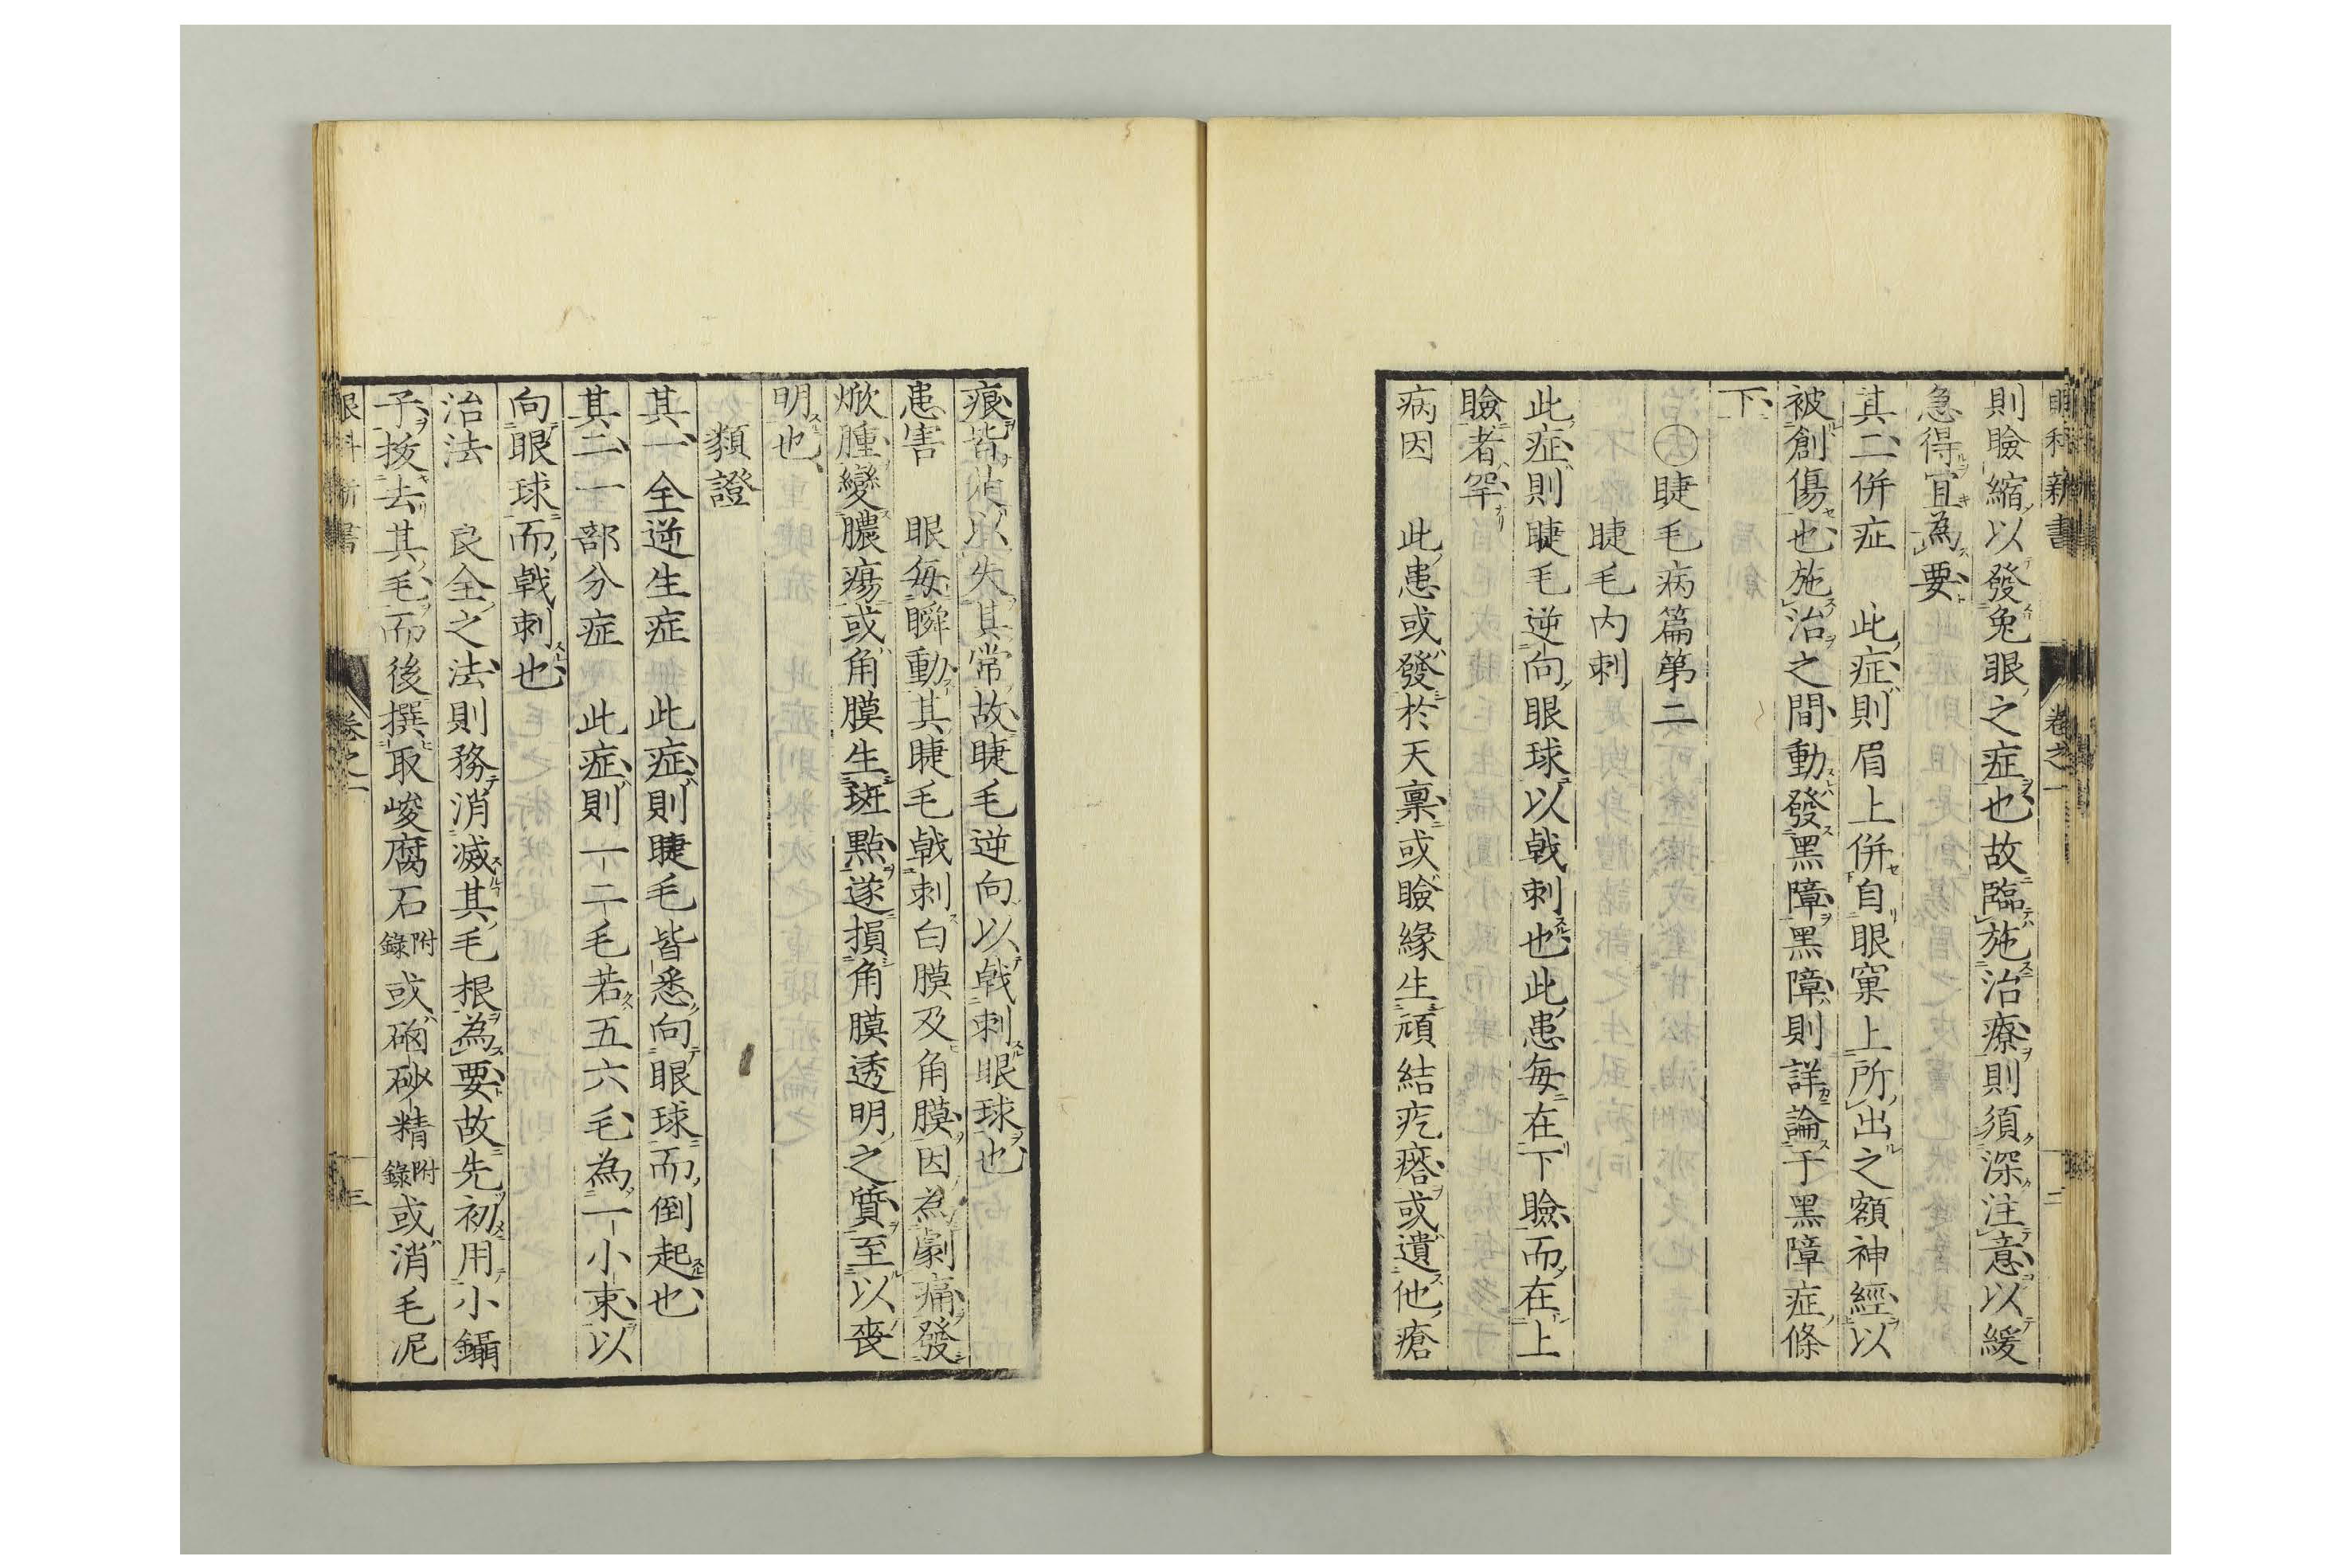 眼科新書 卷之一 二
則瞼縮以發兔眼之症也故臨施治療則須深注意以緩
急得宜為要
其二併症 此症則眉上併自眼窠上所出之額神經以
被創傷也施治之間動發黑障黑障則詳論于黑障症條
下
〇睫毛病篇第二
睫毛内刺
此症則睫毛逆向眼球以戟刺也此患每在下瞼而在上
瞼者罕
病因 此患或發於天稟或瞼緣生頑結疙瘩或遺他瘡
痕皆使以失其常故睫毛逆向以戟刺眼球也
患害 眼每瞬動其睫毛戟刺白膜及角膜因為劇痛發
焮腫變膿瘍或角膜生斑點遂損角膜透明之質至以喪
明也
類證
其一 全逆生症 此症則睫毛皆悉向眼球而倒起也
其二 一部分症 此症則一二毛若五六毛為一小束以
向眼球而戟刺也
治法 良全之法則務消滅其毛根為要故先初用小鑷
子拔去其毛而後撰取峻腐石附錄或硇砂精附錄或消毛泥
眼科新書 卷之一 三